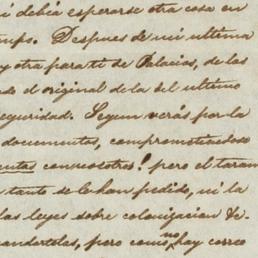 i debia esperarse otra cosa en
empo. Despues de mi ultima
y otra para ti de Palacios, de las
do el original de la del ultimo
eguridad. Segun verás por la
documentos, comprometiendose
entes con nosotros! pero el
tanto se lo han pedido, ni la
las leyes sobre colonizacion &c.
andartelas, pero como no hay correo